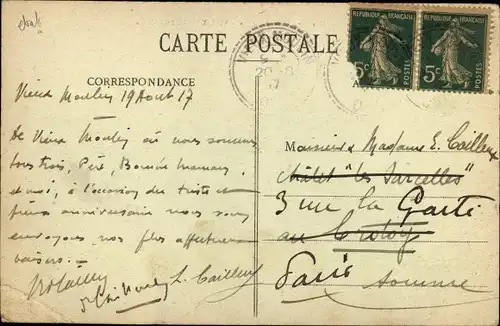 CARTE POSTALE
REPUBLIQUE FRANÇAISE
REPUBLIQUE FRANÇAISE
5c POSTES
5c POSTES
CORRESPONDANCE
Vieux Moulin 19 Aout 17
De Vieux Moulin où nous sommes
tous trois, Père, Bonne maman,
et moi, à l'occasion du triste et
anniversaire nous vous
envoyons nos plus affectueux
baisers.
L. Cailleux
Monsieur & Madame E. Cailleux
Châlet "les Sarcelles"
3 rue la
au Crotoy
Paris Somme